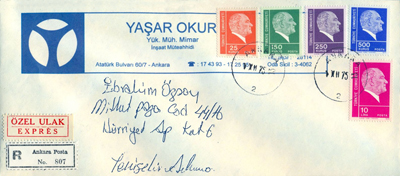 YAŞAR OKUR
Yük. Müh. Mimar
İnşaat Müteahhidi
Atatürk Bulvarı 60/7 - Ankara
☎ : 17 43 93 - 17 25
Oda Sicil : 3-4062
25
150
250
500
10
LİRA
XII 75
XII 75
2
2
İbrahim Özsoy
Mithat paşa Cad 44/16
Hürriyet Ap Kat 6
Yenişehir Ankara
ÖZEL ULAK
EXPRÈS
R
Ankara Posta
No. 807